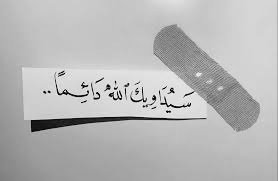 سَيُدَاوِيكَ ٱللهُ دَائِمًا ..